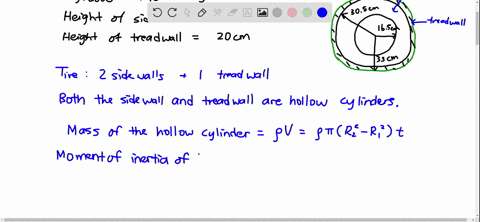 Height of
30.5cm
treadwall
16.5cm
Height of treadwall = 20cm
33cm
Tire : 2 side walls + 1 treadwall
Both the sidewall and treadwall are hollow cylinders.
Mass of the hollow cylinder = ρV = ρπ(R₂² - R₁²) t
Moment of inertia of